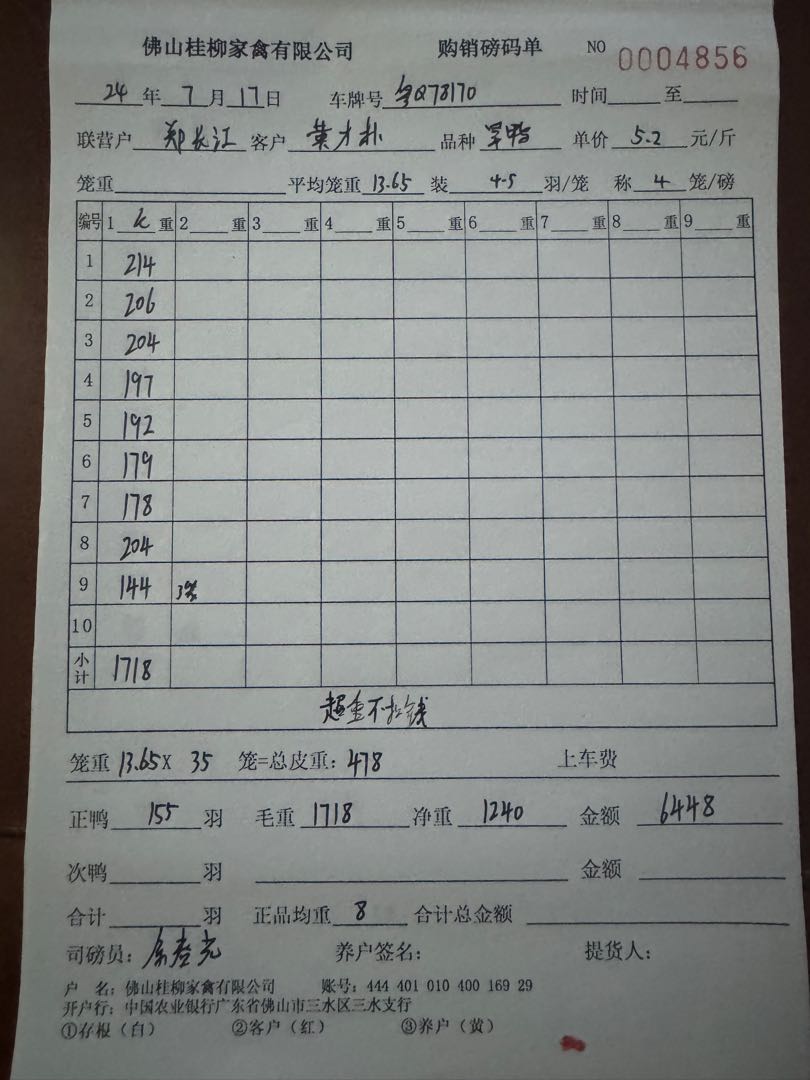 佛山桂柳家禽有限公司 购销磅码单 NO 0004856
24 年 7 月 17 日 车牌号 粤Q78170 时间 至
联营户 郑长江 客户 黄才朴 品种 罗鸭 单价 5.2 元/斤
笼重 平均笼重 13.65 装 4-5 羽/笼 称 4 笼/磅
编号 1 k 重 2 重 3 重 4 重 5 重 6 重 7 重 8 重 9 重
1 214
2 206
3 204
4 197
5 192
6 179
7 178
8 204
9 144 3笼
10
小计 1718
超重不扣钱
笼重 13.65X 35 笼=总皮重: 478 上车费
正鸭 155 羽 毛重 1718 净重 1240 金额 6448
次鸭 羽 金额
合计 羽 正品均重 8 合计总金额
司磅员: 养户签名: 提货人:
户 名: 佛山桂柳家禽有限公司 账号: 444 401 010 400 169 29
开户行: 中国农业银行广东省佛山市三水区三水支行
①存根（白） ②客户（红） ③养户（黄）